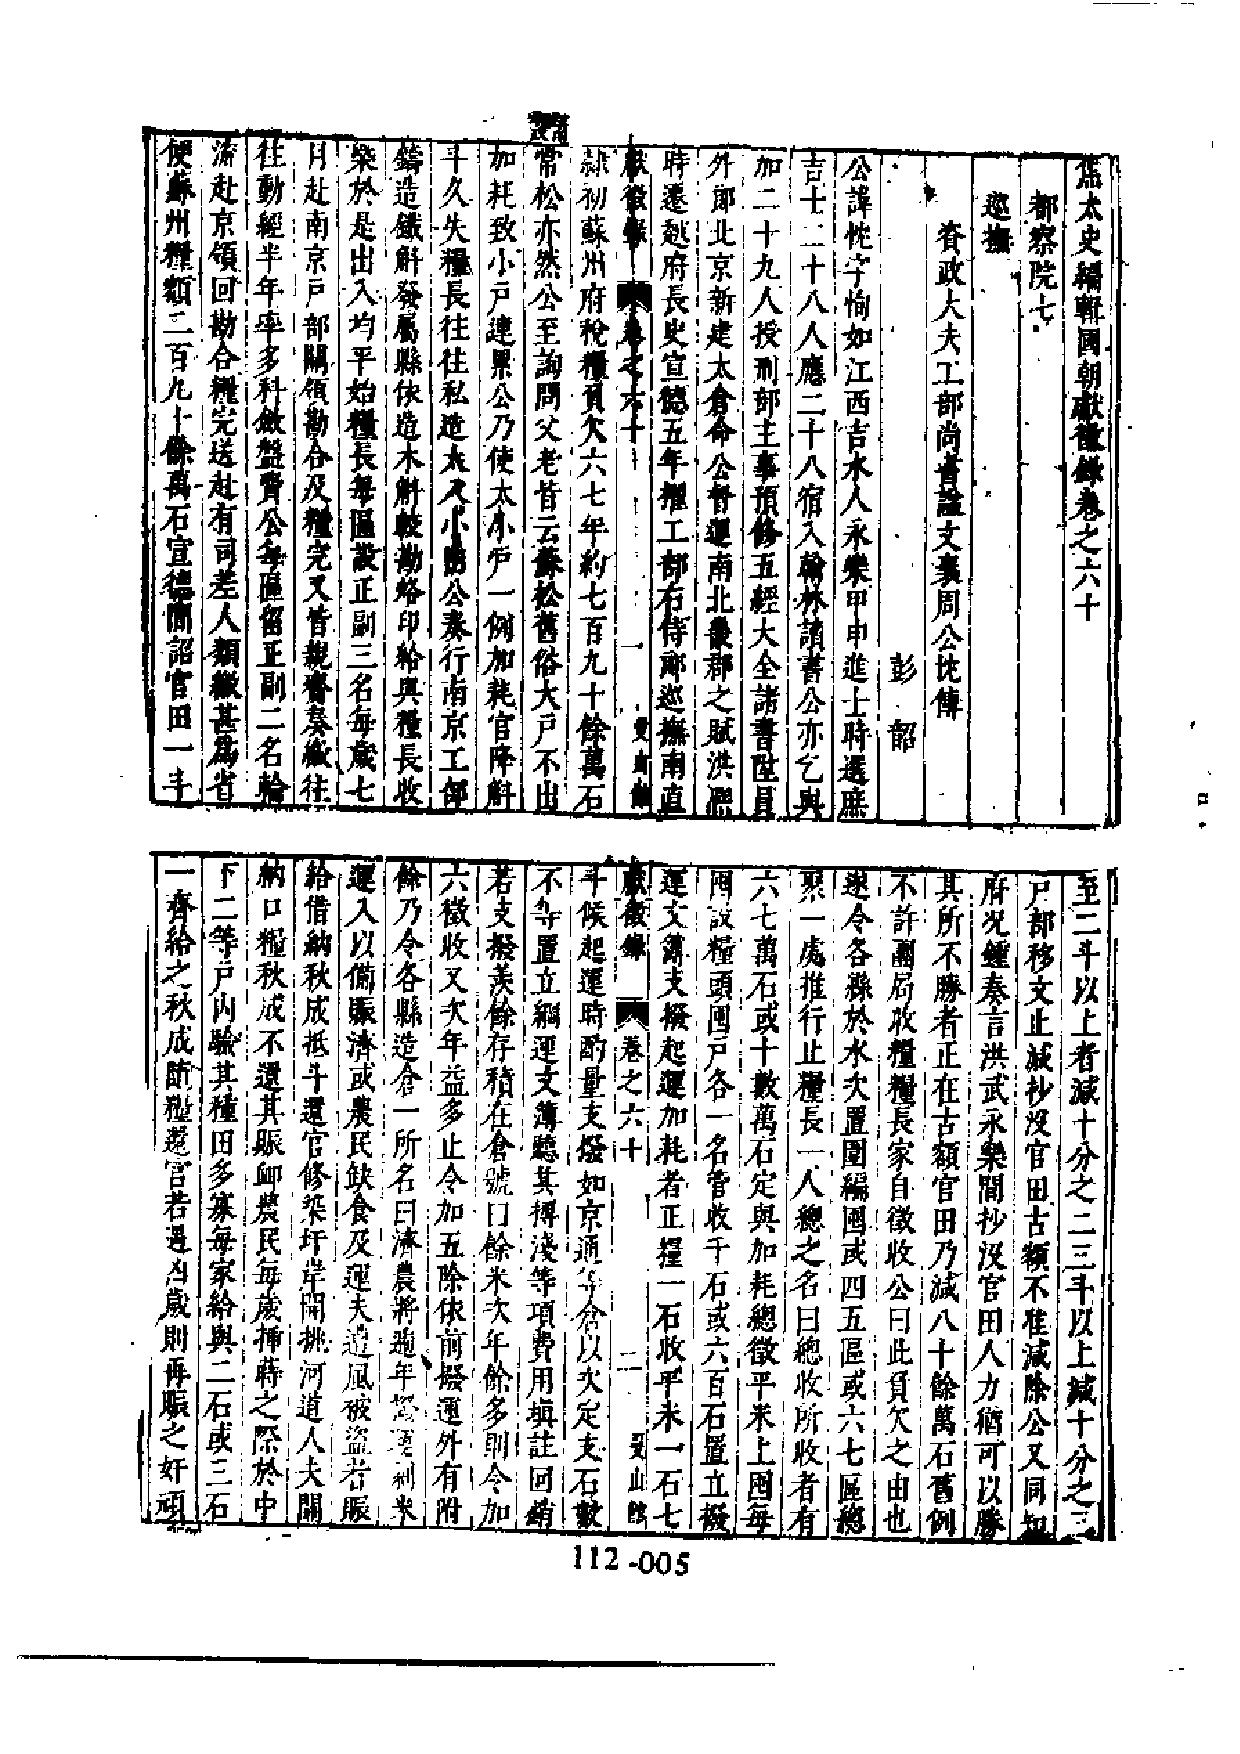 焦太史編輯國朝獻徵錄卷之六十
都察院七
巡撫
資政大夫工部尚書諡文襄周公忱傳
彭韶
公諱忱字恂如江西吉水人永樂甲申進士時選庶
吉士二十八人應二十八宿入翰林讀書公亦乞與
加二十九人授刑部主事預修五經大全諸書陞員
外郎北京新建太倉命公督運南北畿郡之賦洪熙
時遷越府長史宣德五年擢工部右侍郎巡撫南直
獻徵錄 卷之六十 一 曼山館
隸初蘇州府稅糧負欠六七年約七百九十餘萬石
常松亦然公至詢問父老皆云蘇松舊俗大戶不出
加耗致小戶連累公乃使大小戶一例加耗官降斛
斗久失糧長往往私造大入小出公奏行南京工部
鑄造鐵斛發屬縣依造木斛較勘烙印給與糧長收
樂於是出入均平始糧長每區設正副三名每歲七
月赴南京戶部關領勘合及糧完又皆親齎奏繳往
往動經半年率多科斂盤費公每區留正副二名輪
流赴京領回勘合糧完送赴有司差人類繳甚為省
便蘇州糧額二百九十餘萬石宣德間詔官田一斗
至二斗以上者減十分之二三斗以上減十分之三
戶部移文止減抄沒官田古額不准減除公又同知
府況鍾奏言洪武永樂間抄沒官田人力猶可以勝
其所不勝者正在古額官田乃減八十餘萬石舊例
不許團局收糧糧長家自徵收公曰此負欠之由也
遂令各縣於水次置囤編囤或四五區或六七區總
聚一處推行止糧長一人總之名曰總收所收者有
六七萬石或十數萬石定與加耗總徵平米上囤每
囤設糧頭囤戶各一名管收千石或六百石置立撥
運文簿支撥起運加耗者正糧一石收平米一石七
獻徵錄 卷之六十 二 曼山館
斗候起運時酌量支撥如京通等倉以次定支石數
不等置立綱運文簿聽其摶淺等項費用填註回銷
若支撥羨餘存積在倉號曰餘米次年餘多則令加
六徵收又次年益多止令加五除依前撥運外有附
餘乃令各縣造倉一所名曰濟農將遞年剩米
運入以備賑濟或農民缺食及運夫遭風被盜者賑
給借納秋成抵斗還官修築圩岸開挑河道人夫關
納口糧秋成不還其賑卹農民每歲插蒔之際於中
下二等戶內驗其種田多寡每家給與二石或三石
一齊給之秋成隨糧還官若遇凶歲則再賑之奸頑
112-005